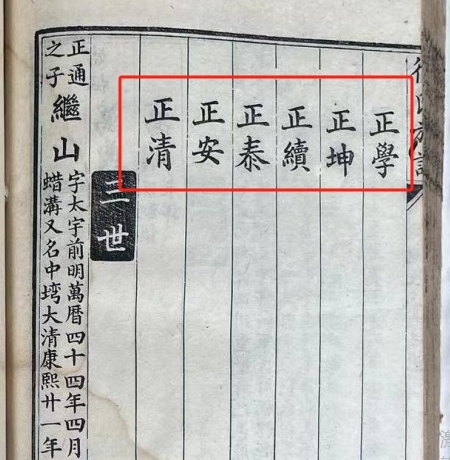 正學
正坤
正續
正泰
正安
正清
三世
正通
之子
繼山
字太宇前明萬曆四十四年四月
蜡溝又名中塆大清康熙廿一年